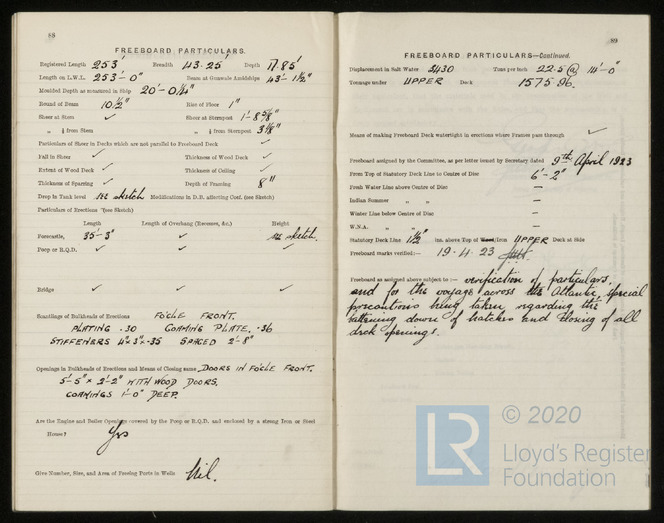 88
FREEBOARD PARTICULARS.
Registered Length 253' Breadth 43·25' Depth 17.85'
Length on L.W.L. 253'-0" Beam at Gunwale Amidships 43'-1½"
Moulded Depth as measured in Ship 20'-0¼"
Round of Beam 10½" Rise of Floor 1"
Sheer at Stem ✓ Sheer at Sternpost 1'-8⅝"
„ ⅛ from Stem ✓ „ ⅛ from Sternpost 3⅛"
Particulars of Sheer in Decks which are not parallel to Freeboard Deck ✓
Fall in Sheer ✓ Thickness of Wood Deck ✓
Extent of Wood Deck ✓ Thickness of Ceiling ✓
Thickness of Sparring ✓ Depth of Framing 8"
Drop in Tank level see sketch Modifications in D.B. affecting Conf. (see Sketch)
Particulars of Erections (see Sketch)
Length Length of Overhang (Recesses, &c.) Height
Forecastle, 35'-3" ✓ see sketch.
Poop or R.Q.D. ✓ ✓
Bridge ✓ ✓ ✓
Scantlings of Bulkheads of Erections FO'CLE FRONT.
PLATING .30 COAMING PLATE, .36
STIFFENERS 4"x 3"x .35 SPACED 2'-8"
Openings in Bulkheads of Erections and Means of Closing same DOORS IN FO'CLE FRONT.
5'-5" x 2'-2" WITH WOOD DOORS.
COAMINGS 1'-0" DEEP.
Are the Engine and Boiler Openings covered by the Poop or R.Q.D. and enclosed by a strong Iron or Steel
House? Yes
Give Number, Size, and Area of Freeing Ports in Wells Nil.
89
FREEBOARD PARTICULARS—Continued.
Displacement in Salt Water 3430 Tons per inch 22.5 @ 14'-0"
Tonnage under UPPER Deck 1575.96.
Means of making Freeboard Deck watertight in erections where Frames pass through ✓
Freeboard assigned by the Committee, as per letter issued by Secretary dated 9th April 1923
From Top of Statutory Deck Line to Centre of Disc 6'-2"
Fresh Water Line above Centre of Disc —
Indian Summer „ „ —
Winter Line below Centre of Disc —
W.N.A. „ „ —
Statutory Deck Line 1½" ins. above Top of Wood/Iron UPPER Deck at Side
Freeboard marks verified:— 19.4.23
Freeboard as assigned above subject to:— verification of particulars,
and for the voyage across the Atlantic, special
precautions being taken, regarding the
battening down of hatches and closing of all
deck openings.
© 2020
LR
Lloyd's Register
Foundation